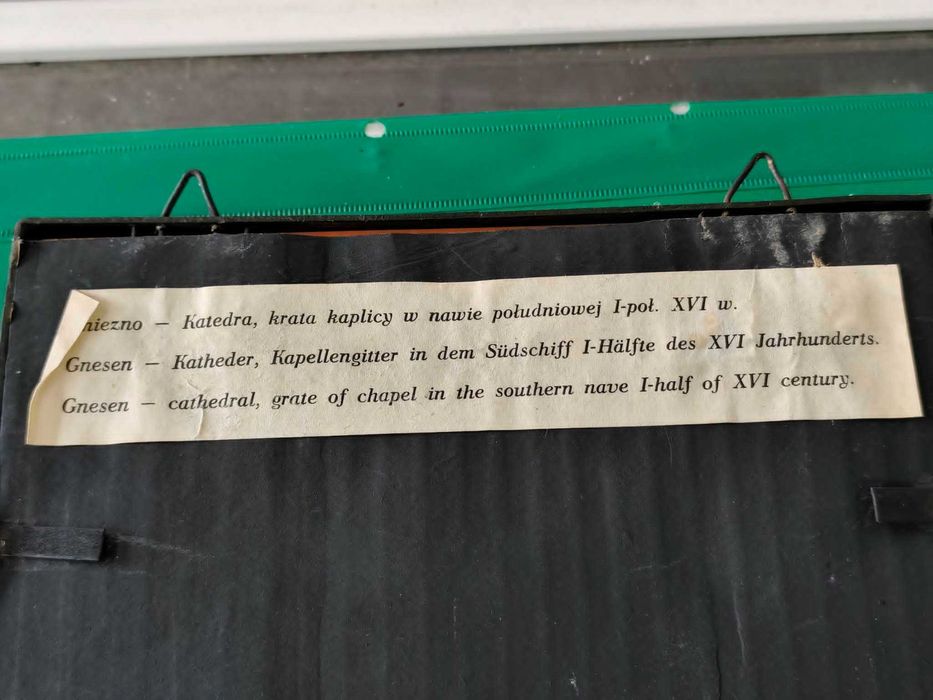 niezno — Katedra, krata kaplicy w nawie południowej I-poł. XVI w.
Gnesen — Katheder, Kapellengitter in dem Südschiff I-Hälfte des XVI Jahrhunderts.
Gnesen — cathedral, grate of chapel in the southern nave I-half of XVI century.